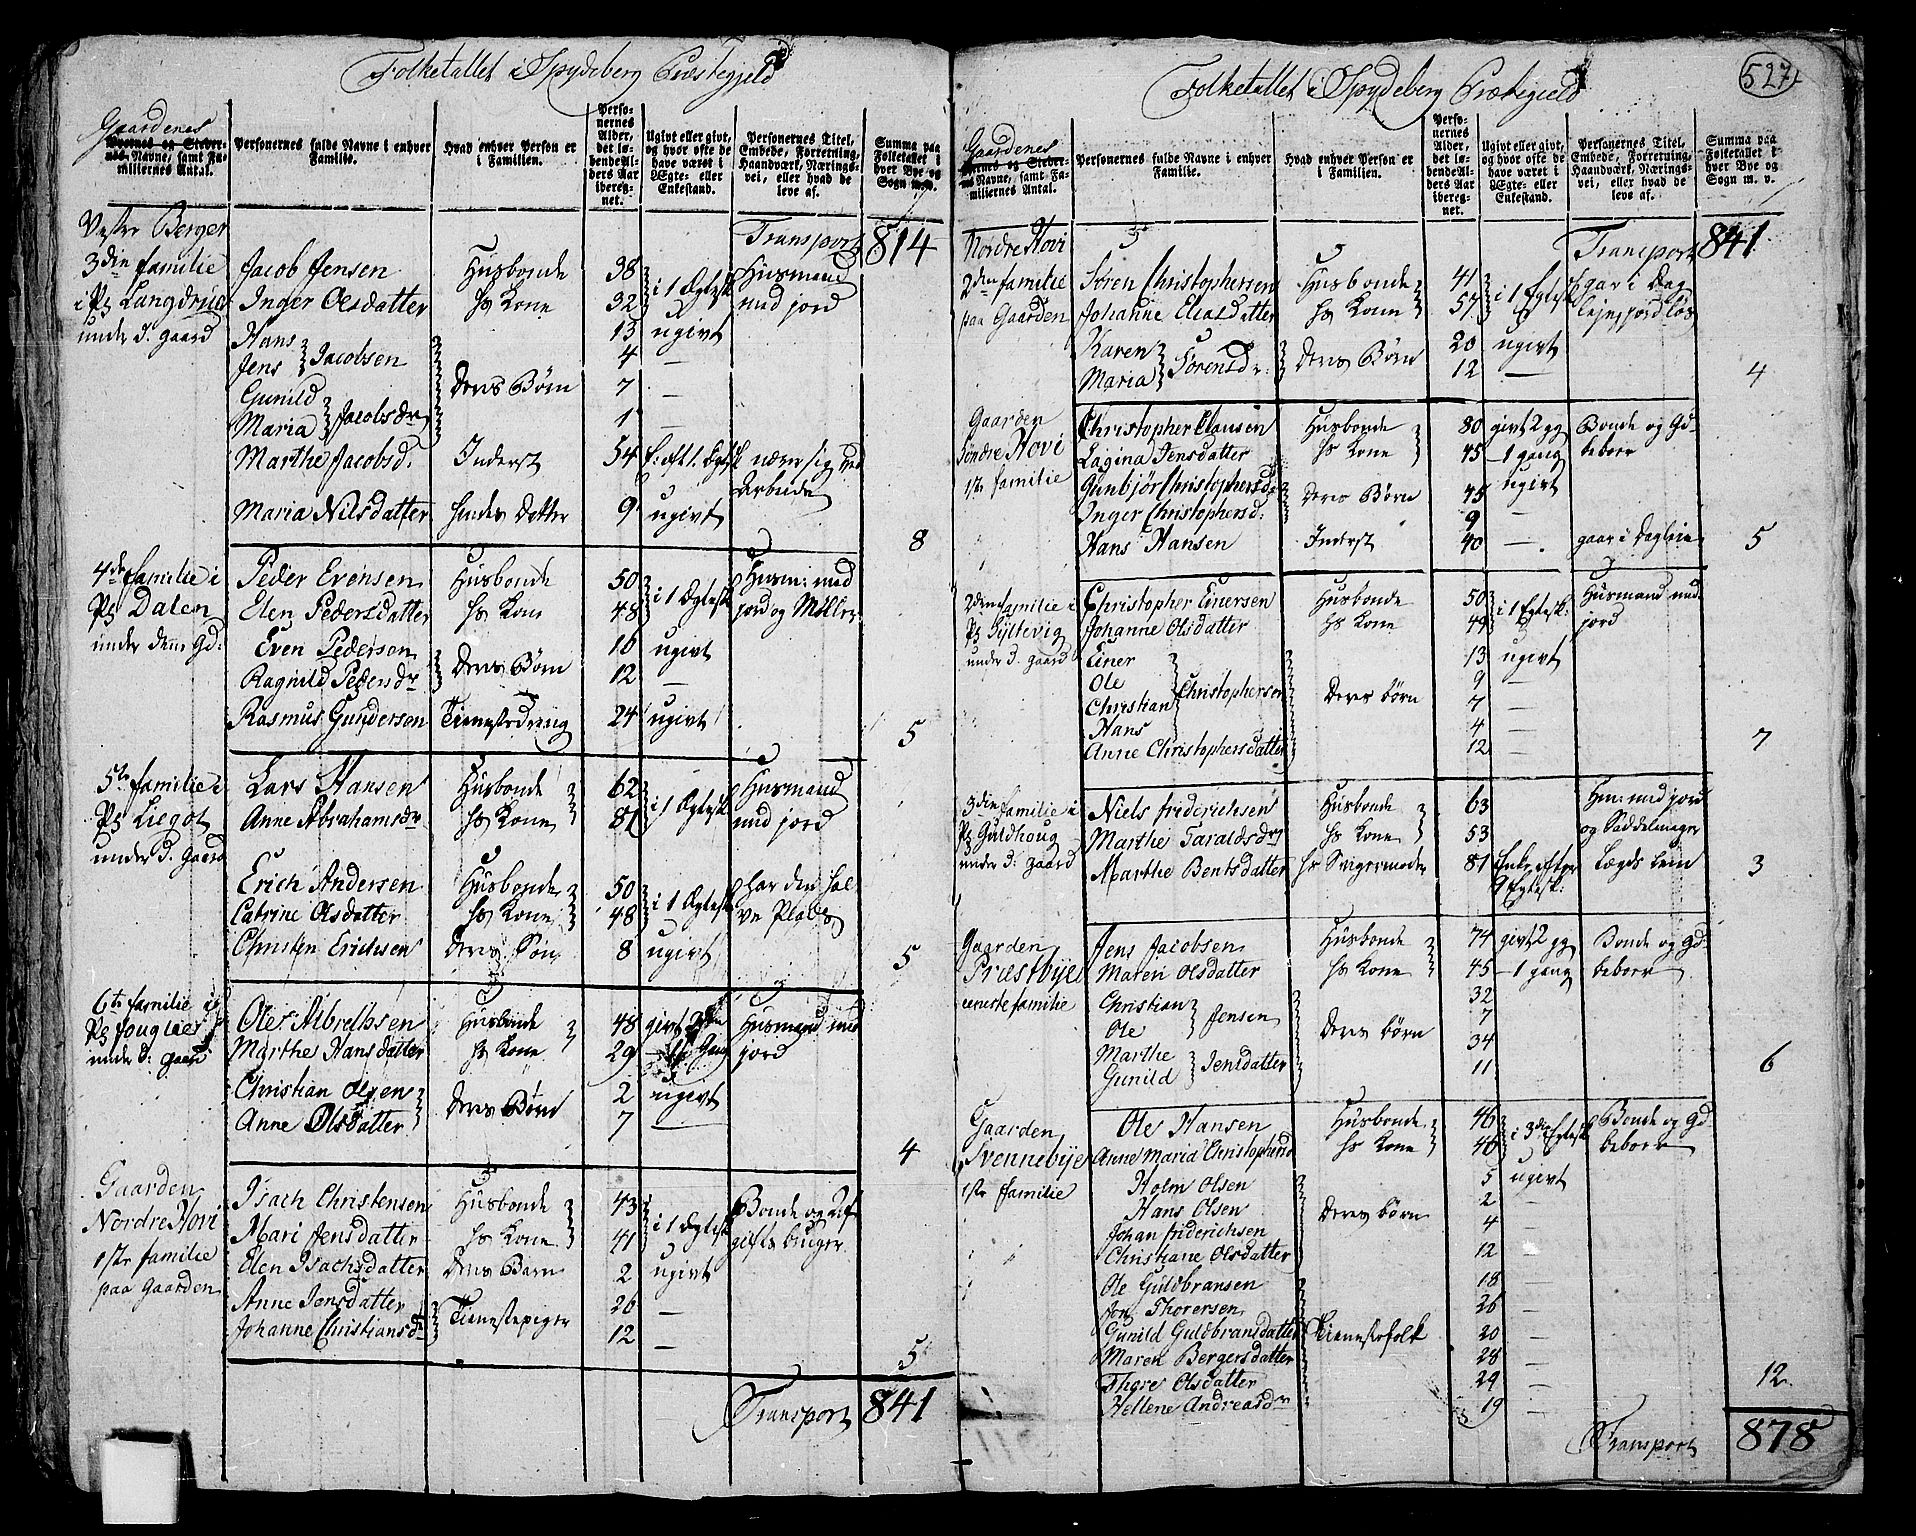 Folketallet i Spydeberg Præstegjeld
Gaardenes
Byernes og Stedernes Navne, samt Familiernes Antal.
Personernes fulde Navne i enhver Familie.
Hvad enhver Person er i Familien.
Personernes Alder, det løbende Alders Aar iberegnet.
Ugivt eller givt, og hvor ofte de have været i Ægte- eller Enkestand.
Personernes Titel, Embede, Forretning, Haandværk, Næringsvei, eller hvad de leve af.
Summa paa Folketallet i hver Bye og Sogn m. v.
Vestre Berger Transport 814
3die familie Jacob Jensen Husbonde 38 i 1 Ægtesk Husmand
i Ps Langdrud Inger Olsdatter hs Kone 32 med jord
under d: gaard Hans 13 ugivt
Jens } Jacobsen 4 —
Gunild Deres Børn 7 —
Maria } Jacobsdr 1 —
Marthe Jacobsd. Inderst 54 E: eft 1. Ægtesk nærer sig ved Arbeide
Maria Nilsdatter hendes Datter 9 ugivt
8
4de familie i Peder Evensen Husbonde 50 i 1 Ægtesk Husm: med
Ps Dalen Elen Pedersdatter hs Kone 48 jord og Møller
under denne Gd: Even Pedersen Deres Børn 16 ugivt
Ragnild Pedersdr 12 —
Rasmus Gundersen Tienestedreng 24 ugivt
5
5te familie i Lars Hansen Husbonde 62 i 1 Ægtesk Husmand
Ps Liegot Anne Abrahamsdr hs Kone 81 med jord
under d. Gaard
Erich Andersen Husbonde 50 i 1 Ægtesk har den hal-
Catrine Olsdatter hs Kone 48 ve Plads
Christen Erichsen Deres Søn 8 ugivt
5
6te familie i Ole Albrethsen Husbonde 48 givt 2den Husmand med
Ps fouglier Marthe Hansdatter hs Kone 29 1 Gang jord
under d: gaard Christian Olsen Deres Børn 2 ugivt
Anne Olsdatter 7 —
4
Gaarden Isach Christensen Husbonde 43 i 1 Ægtesk Bonde og Af-
Nordre Hovi Mari Jensdatter hs Kone 41 gifts bruger
1ste familie Elen Isachsdatter Deres Barn 2 ugivt
paa Gaarden Anne Jensdatter Tienestepiger 26 —
Johanne Christiansdr 12 —
5
Transport 841
527
Folketallet i Spydeberg Præstegield
Gaardenes
Byernes og Stedernes Navne, samt Familiernes Antal.
Personernes fulde Navne i enhver Familie.
Hvad enhver Person er i Familien.
Personernes Alder, det løbende Alders Aar iberegnet.
Ugivt eller givt, og hvor ofte de have været i Ægte- eller Enkestand.
Personernes Titel, Embede, Forretning, Haandværk, Næringsvei, eller hvad de leve af.
Summa paa Folketallet i hver Bye og Sogn m. v.
Nordre Hovi Transport 841
2den familie Søren Christophersen Husbonde 41 i 1 Egtesk gar i Dag
paa Gaarden Johanne Eliasdatter hs Kone 57 leje, jordløs
Karen Deres Børn 20 ugivt
Maria } Sørensdr: 12 —
4
Gaarden Christopher Clausen Husbonde 80 givt 2 gg Bonde og Gd
Søndre Hovi Lagina Jensdatter hs Kone 45 — 1 gang beboer
1ste familie Gunbjør Christophersdr Deres Børn 45 ugivt
Inger Christophersd: 9 —
Hans Hansen Inderst 40 — gaar i Dagleie
5
2den familie i Christopher Einersen Husbonde 50 i 1 Egtesk: Husmand med
Ps Syltevig Johanne Olsdatter hs Kone 49 jord
under d. gaard Einer 13 ugivt
Ole 9 —
Christian } Christophersen Deres børn 7 —
Hans 4 —
Anne Christophersdatter 12 —
7
3die familie i Niels friderichsen Husbonde 63 Hm: med jord
Ps Guldhoug Marthe Taraldsdr hs Kone 53 og Saddelmager
under d: gaard Marthe Bentsdatter hs Svigermoder 81 Enke efter Lægds lem
Egtesk:
3
Gaarden Jens Jacobsen Husbonde 74 givt 2 gg Bonde og Gd
Præstbye Maren Olsdatter hs Kone 45 — 1 gang beboer
eeneste familie Christian 32
Ole } Jensen Deres børn 7
Marthe 34
Gunild } Jensdatter 11
6
Gaarden Ole Hansen Husbonde 46 i 3die Egtesk Bonde og Gd
Svennebye Anne Maria Christophersd hs Kone 46 beboer
1ste familie Holm Olsen 5 ugivt
Hans Olsen Deres børn 2 —
Johan friderichsen 4 —
Christiane Olsdatter 12 —
Ole Guldbransen 18 —
Jon Thorersen 26 —
Gunild Guldbransdatter Tienestefolk 20 —
Maren Bergersdatter 28 —
Thore Olsdatter 29 —
Hellene Andreasdr 19 —
12
Transport 878